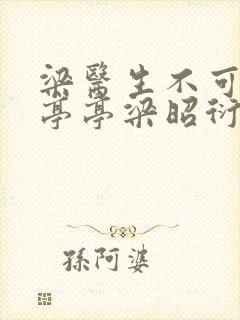 梁醫生不可
亭亭梁昭衍
孫阿婆